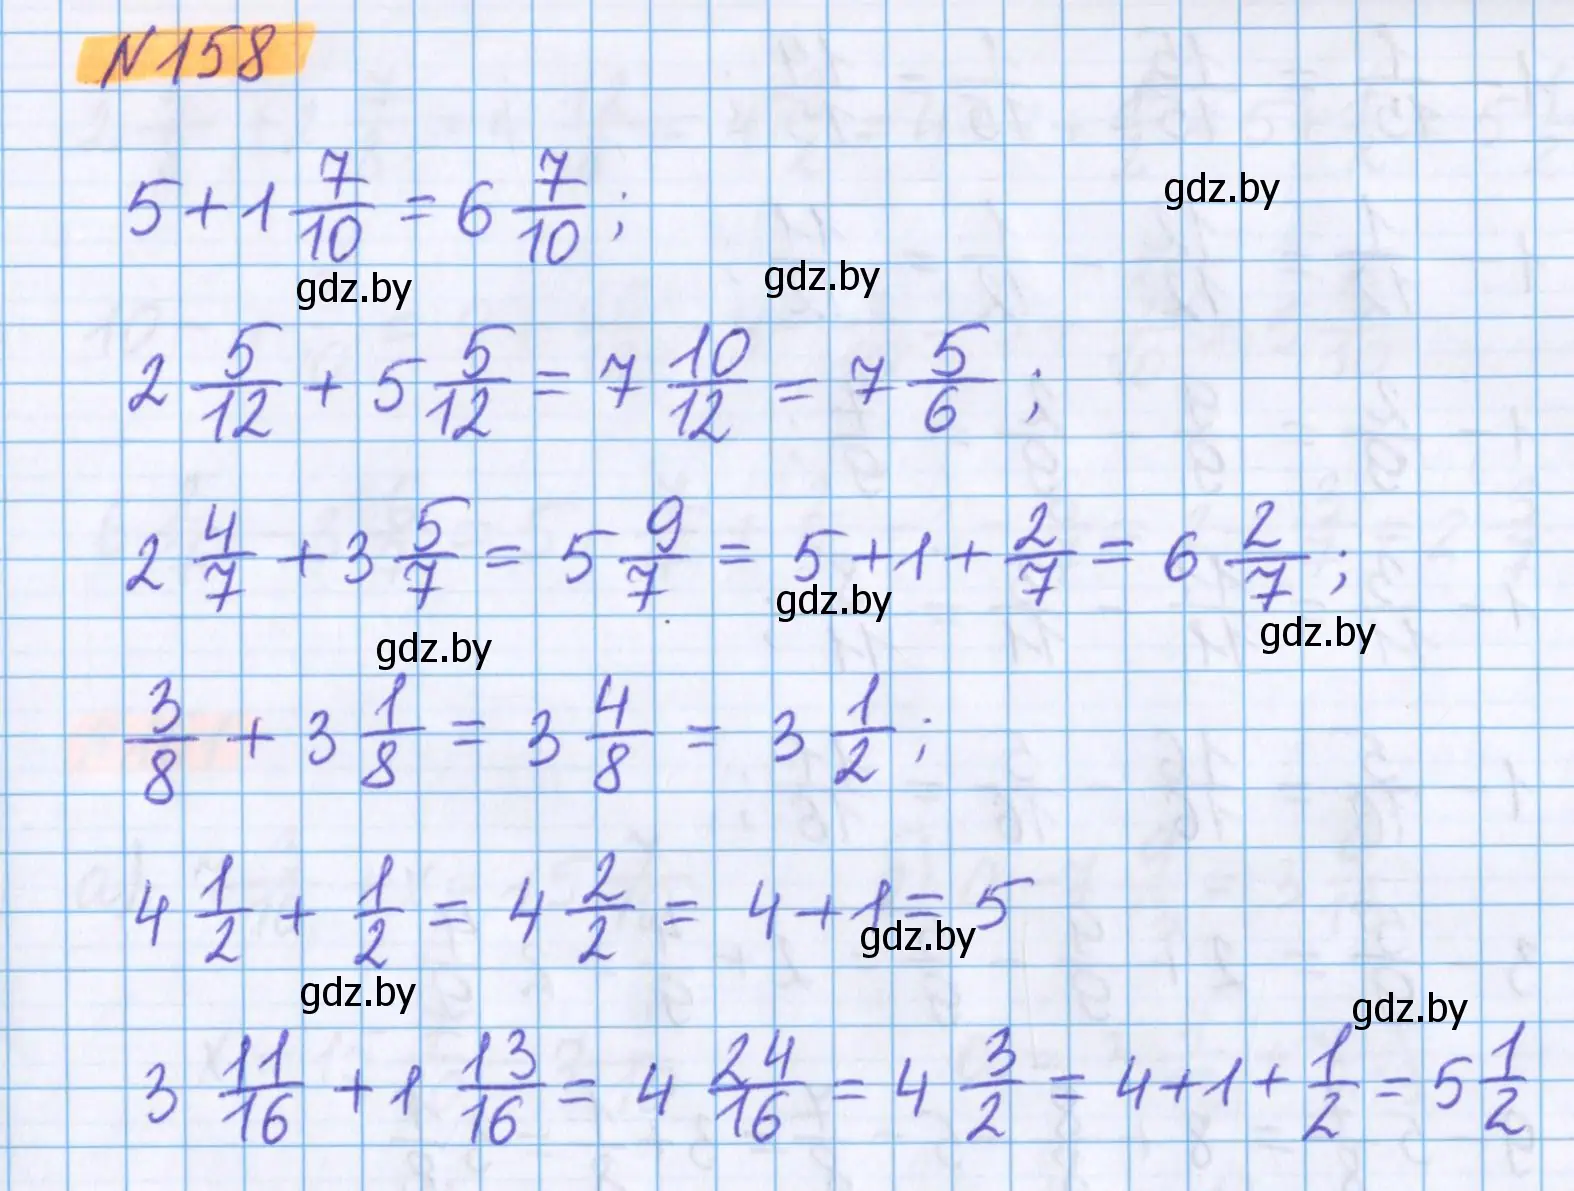 N158
5 + 1 7/10 = 6 7/10 ;
gdz.by
gdz.by
gdz.by
2 5/12 + 5 5/12 = 7 10/12 = 7 5/6 ;
2 4/7 + 3 5/7 = 5 9/7 = 5 + 1 + 2/7 = 6 2/7 ;
gdz.by
gdz.by
gdz.by
3/8 + 3 1/8 = 3 4/8 = 3 1/2 ;
4 1/2 + 1/2 = 4 2/2 = 4 + 1 = 5
gdz.by
gdz.by
gdz.by
3 11/16 + 1 13/16 = 4 24/16 = 4 3/2 = 4 + 1 + 1/2 = 5 1/2